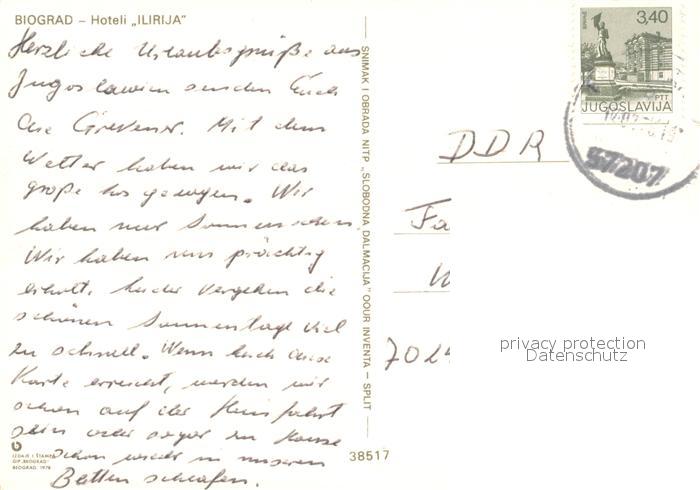 BIOGRAD – Hoteli „ILIRIJA"
Herzliche Urlaubsgrüße aus
Jugoslawien senden Euch
die Grevener. Mit dem
Wetter haben wir das
große los gezogen. Wir
haben nur Sonnenschein.
Wir haben uns prächtig
erholt. Leider vergehen die
schönen Sonnentage viel
zu schnell. Wenn Euch diese
Karte erreicht, werden wir
schon auf der Heimfahrt
sein oder sogar zu Hause
schon wieder in unseren
Betten schlafen.
IZDAJE I ŠTAMPA
GIP „BEOGRAD"
BEOGRAD, 1978
SNIMAK I OBRADA NITP „SLOBODNA DALMACIJA" OOUR INVENTA – SPLIT
38517
3,40
PTT
JUGOSLAVIJA
57207
DDR
Fa
W
7024
privacy protection
Datenschutz